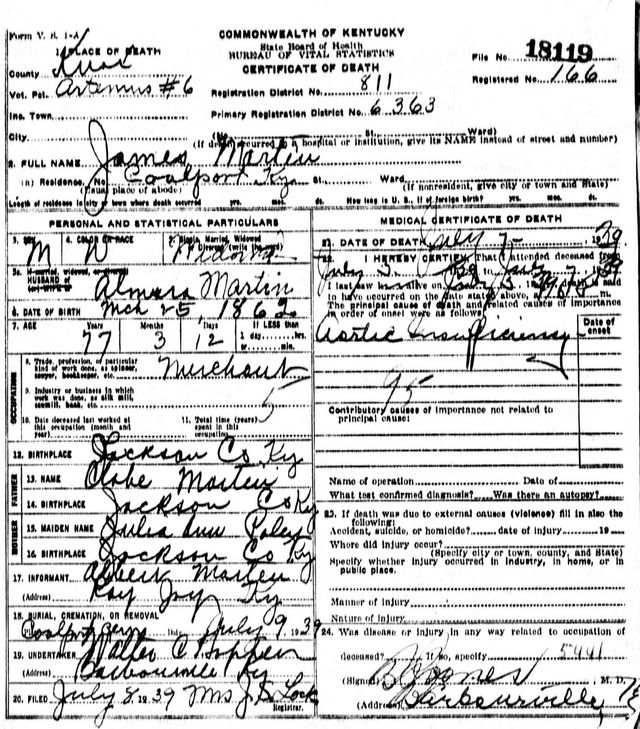 Form V. S. 1-A
COMMONWEALTH OF KENTUCKY
State Board of Health
BUREAU OF VITAL STATISTICS
CERTIFICATE OF DEATH
File No. 18119
Registered No. 166
1. PLACE OF DEATH
County Knox
Vot. Pct. Artemus #6
Inc. Town
City
Registration District No. 811
Primary Registration District No. 6363
(No. St. Ward)
(If death occurred in a hospital or institution, give its NAME instead of street and number)
2. FULL NAME James Martin
(a) Residence. No. Coalport Ky. St., Ward.
(Usual place of abode) (If nonresident, give city or town and State)
Length of residence in city or town where death occurred yrs. mos. ds. How long in U. S., if of foreign birth? yrs. mos. ds.
PERSONAL AND STATISTICAL PARTICULARS
3. SEX 4. COLOR OR RACE 5. Single, Married, Widowed or Divorced (write the word)
M W
5a. If married, widowed, or divorced
HUSBAND of
Martin
6. DATE OF BIRTH Mch 25, 1862
7. AGE Years Months Days If LESS than
77 3 12 1 day, hrs. or min.
OCCUPATION
8. Trade, profession, or particular kind of work done, as spinner, sawyer, bookkeeper, etc. Merchant
9. Industry or business in which work was done, as silk mill, sawmill, bank, etc. 5
10. Date deceased last worked at this occupation (month and year)
11. Total time (years) spent in this occupation
12. BIRTHPLACE Jackson Co Ky
FATHER
13. NAME Clabe Martin
14. BIRTHPLACE Jackson Co Ky
MOTHER
15. MAIDEN NAME Julia Ann
16. BIRTHPLACE Jackson Co Ky
17. INFORMANT Albert Martin
(Address) Kay Jay Ky
18. BURIAL, CREMATION, OR REMOVAL
Coalport Cem Date July 9, 1939
19. UNDERTAKER Hopper
(Address) Barbourville Ky
20. FILED July 8 1939 Mrs J. Lock
Registrar.
MEDICAL CERTIFICATE OF DEATH
21. DATE OF DEATH July 7- 1939
22. I HEREBY CERTIFY, That I attended deceased from
July 3, 1939 to July 7, 1939
I last saw him alive on July 3, 1939, death is said
to have occurred on the date stated above, m.
The principal cause of death and related causes of importance
in order of onset were as follows:
Date of onset
Aortic Insufficiency
95
Contributory causes of importance not related to
principal cause:
Name of operation Date of
What test confirmed diagnosis? Was there an autopsy?
23. If death was due to external causes (violence) fill in also
the following:
Accident, suicide, or homicide? date of injury 19
Where did injury occur?
(Specify city or town, county, and State)
Specify whether injury occurred in industry, in home, or in
public place.
Manner of injury
Nature of injury
24. Was disease or injury in any way related to occupation of
deceased? If so, specify 5441
(Signed) Jones, M. D.
(Address) Barbourville, K